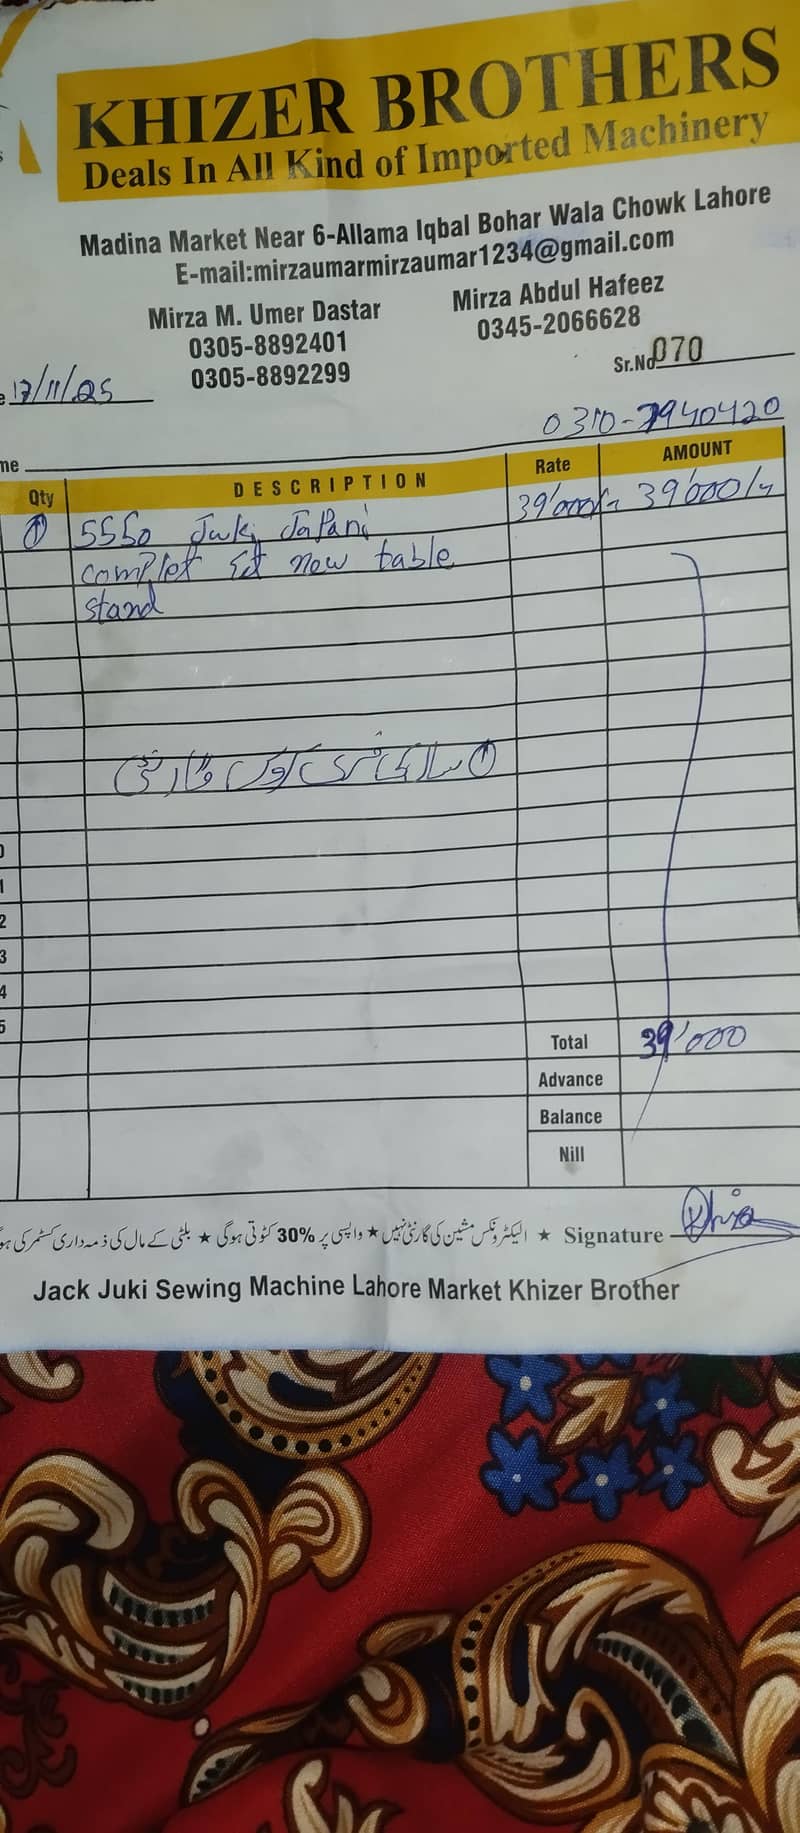 KHIZER BROTHERS
Deals In All Kind of Imported Machinery
Madina Market Near 6-Allama Iqbal Bohar Wala Chowk Lahore
E-mail:mirzaumarmirzaumar1234@gmail.com
Mirza M. Umer Dastar
0305-8892401
0305-8892299
Mirza Abdul Hafeez
0345-2066628
Sr.No 070
17/11/25
0310-7940420
Qty DESCRIPTION Rate AMOUNT
1 5550 Juki JaPani 39'000/- 39'000/-
complet set new table
stand
1 سال کی فری ورک وارنٹی
Total 39'000
Advance
Balance
Nill
الیکٹرونکس مشین کی گارنٹی نہیں ★ واپسی پر 30% کٹوتی ہوگی ★ بلٹی کے مال کی ذمہ داری کسٹمر کی
★ Signature
Jack Juki Sewing Machine Lahore Market Khizer Brother